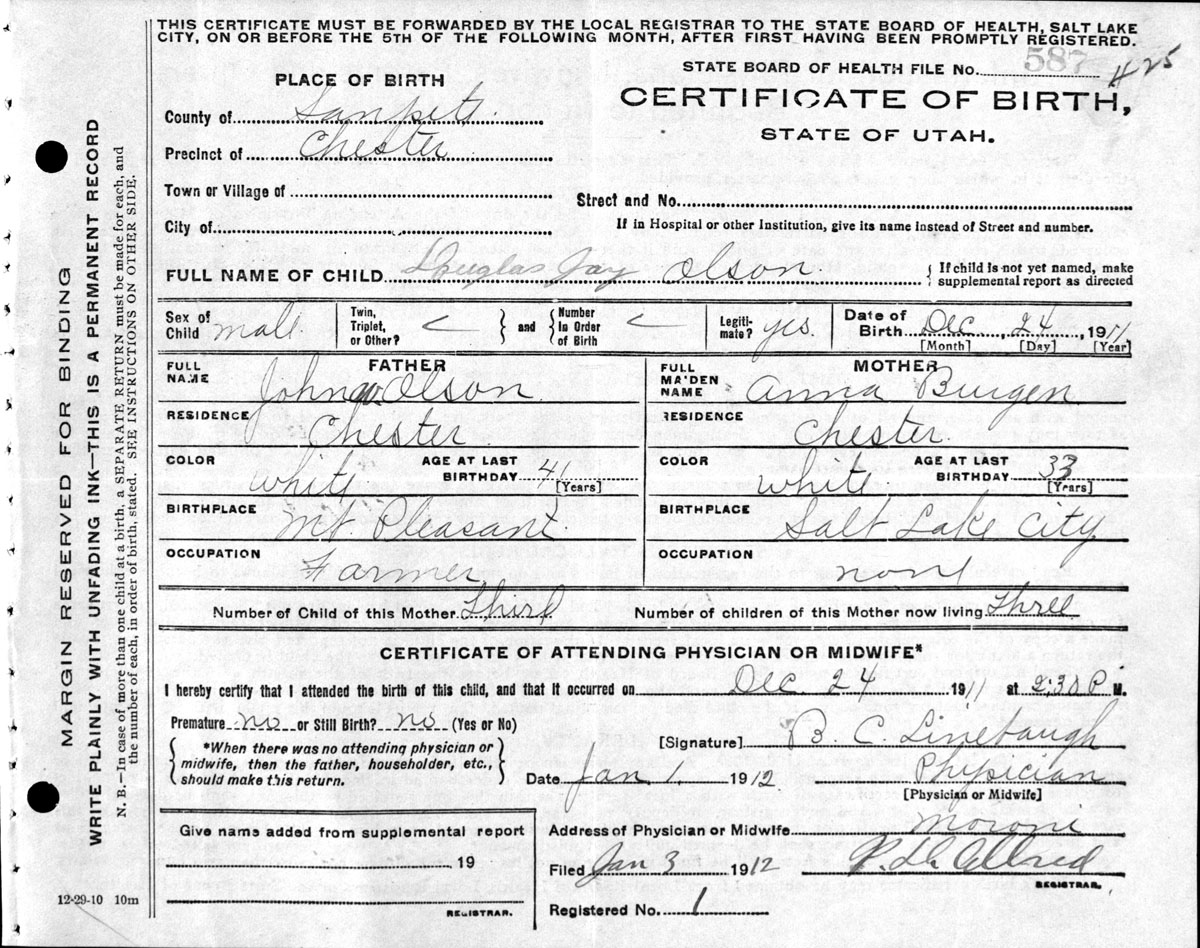 THIS CERTIFICATE MUST BE FORWARDED BY THE LOCAL REGISTRAR TO THE STATE BOARD OF HEALTH, SALT LAKE
CITY, ON OR BEFORE THE 5TH OF THE FOLLOWING MONTH, AFTER FIRST HAVING BEEN PROMPTLY REGISTERED.
STATE BOARD OF HEALTH FILE No. 587 # 425
PLACE OF BIRTH
CERTIFICATE OF BIRTH,
STATE OF UTAH.
County of Sanpete
Precinct of Chester
Town or Village of
Street and No.
City of
If in Hospital or other Institution, give its name instead of Street and number.
FULL NAME OF CHILD Douglas Jay Olson { If child is not yet named, make supplemental report as directed
Sex of Child male
Twin, Triplet, or Other? } and { Number in Order of Birth
Legitimate? yes.
Date of Birth Dec, 24, 1911
[Month] [Day] [Year]
FATHER
FULL NAME John W Olson
RESIDENCE Chester
COLOR White AGE AT LAST BIRTHDAY 41 [Years]
BIRTHPLACE Mt. Pleasant
OCCUPATION Farmer
MOTHER
FULL MAIDEN NAME Anna Burgen
RESIDENCE Chester
COLOR White AGE AT LAST BIRTHDAY 33 [Years]
BIRTHPLACE Salt Lake City
OCCUPATION none
Number of Child of this Mother Third Number of children of this Mother now living Three
CERTIFICATE OF ATTENDING PHYSICIAN OR MIDWIFE*
I hereby certify that I attended the birth of this child, and that it occurred on Dec. 24 1911 at 2:30 P. M.
Premature no or Still Birth? no (Yes or No)
{ *When there was no attending physician or
midwife, then the father, householder, etc.,
should make this return. }
[Signature] B. C. Linebaugh
Date Jan 1, 1912 Physician
[Physician or Midwife]
Give name added from supplemental report
19
REGISTRAR.
Address of Physician or Midwife Moroni
Filed Jan 3 1912 Allred
REGISTRAR.
Registered No. 1
12-29-10 10m
MARGIN RESERVED FOR BINDING
WRITE PLAINLY WITH UNFADING INK—THIS IS A PERMANENT RECORD
N. B.—In case of more than one child at a birth, a SEPARATE RETURN must be made for each, and
the number of each, in order of birth, stated. SEE INSTRUCTIONS ON OTHER SIDE.